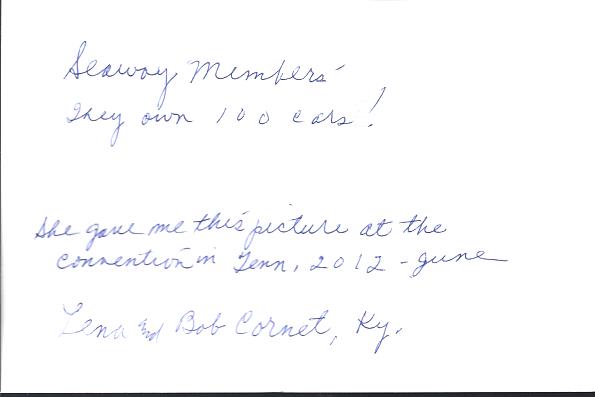 Seaway Members
They own 100 cars!
She gave me this picture at the
convention in Tenn, 2012 - June
Lena and Bob Cornet, Ky.